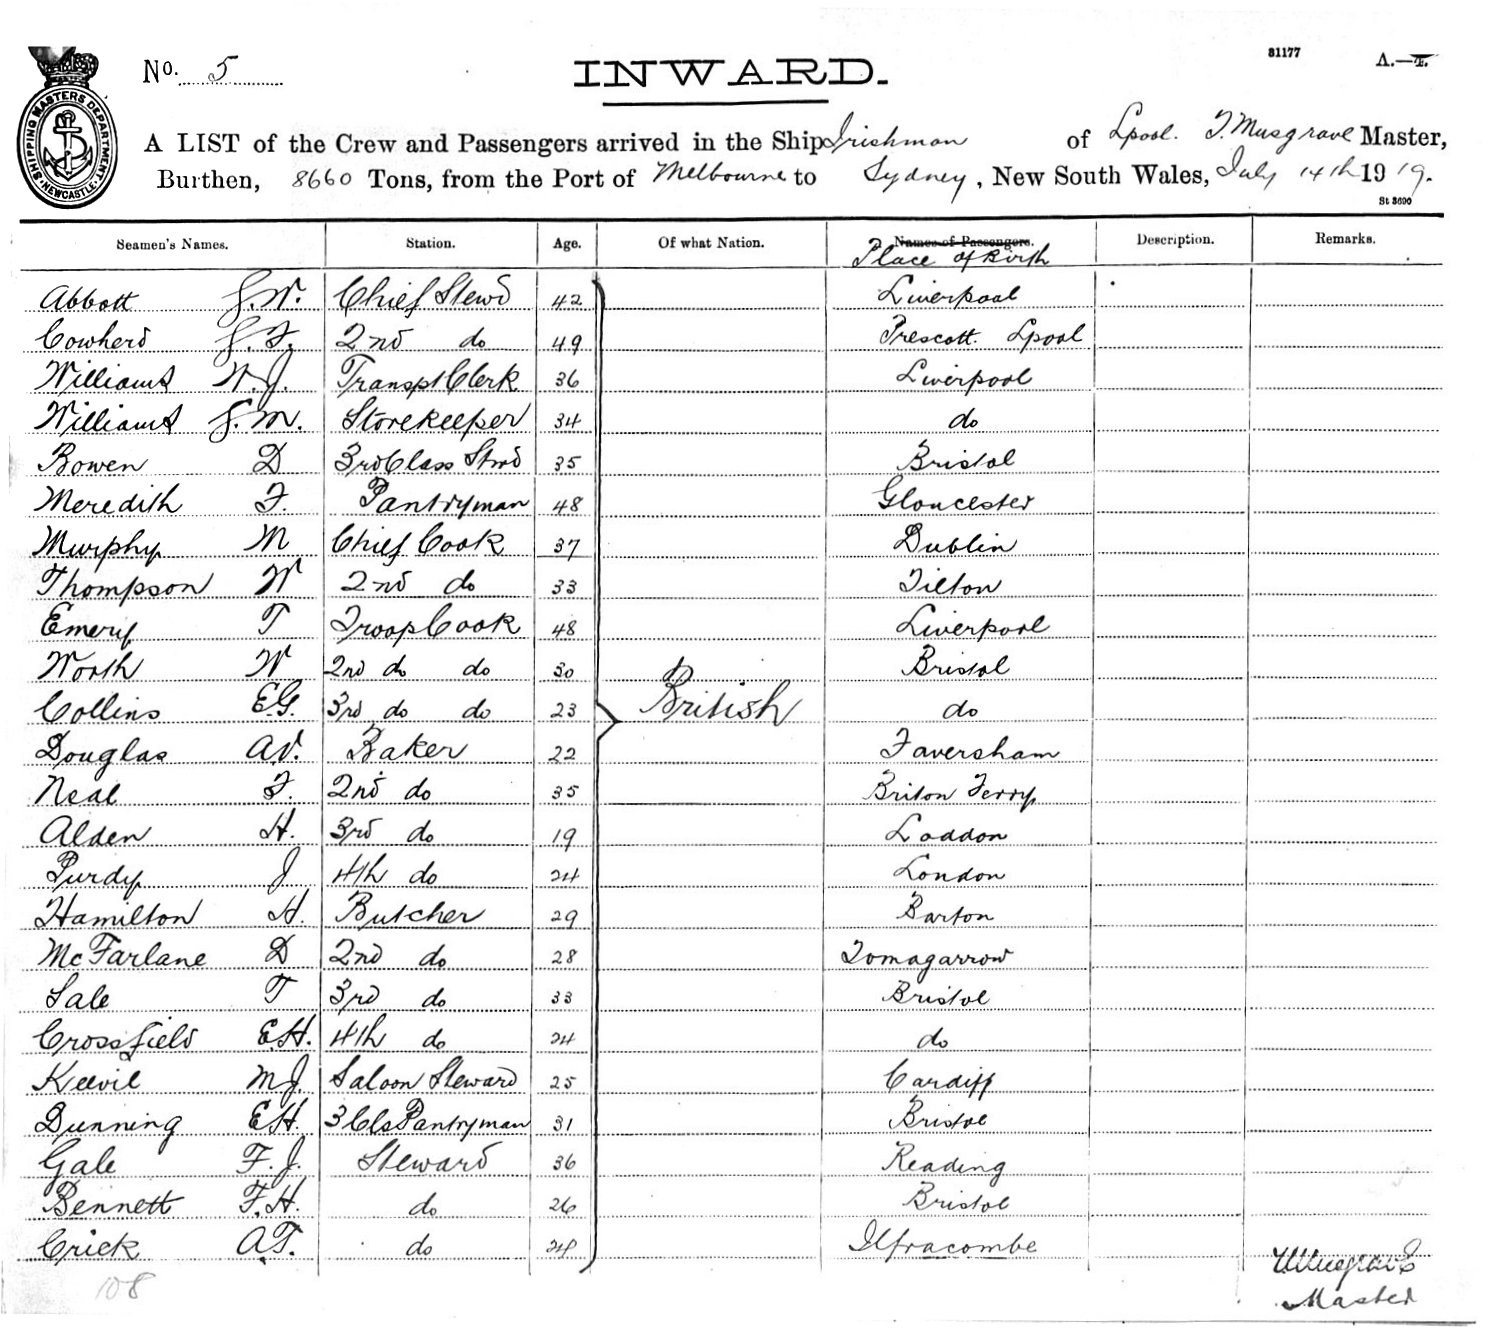 SHIPPING MASTERS DEPARTMENT NEWCASTLE
No. 5
INWARD.
81177
A.—T.
A LIST of the Crew and Passengers arrived in the Ship Irishman of Lpool. T. Musgrave Master,
Burthen, 8660 Tons, from the Port of Melbourne to Sydney, New South Wales, July 14th 1919.
St 3690
Seamen's Names. Station. Age. Of what Nation. Names of Passengers. Description. Remarks.
Place of Birth
Abbott G.W. Chief Stewd 42 Liverpool
Cowherd G.F. 2nd do 49 Prescott. Lpool
Williams W.J. Transpt Clerk 36 Liverpool
Williams G.M. Storekeeper 34 do
Bowen D 3rd Class Stwd 35 Bristol
Meredith F. Pantryman 48 Gloucester
Murphy M Chief Cook 37 Dublin
Thompson W 2nd do 33 Tilton
Emery T Troop Cook 48 Liverpool
Worth W 2nd do do 30 Bristol
Collins E.G. 3rd do do 23 British do
Douglas A.V. Baker 22 Faversham
Neal F. 2nd do 35 Briton Ferry
Alden H. 3rd do 19 Loddon
Purdy J 4th do 24 London
Hamilton H. Butcher 29 Barton
McFarlane D 2nd do 28 Tomagarrow
Sale T 3rd do 33 Bristol
Crossfield E.H. 4th do 24 do
Keevil M.J. Saloon Steward 25 Cardiff
Dunning E.H. 3 Cls Pantryman 31 Bristol
Gale F.J. Steward 36 Reading
Bennett F.H. do 26 Bristol
Crick A.T. do 24 Ilfracombe
108
Musgrave
Master